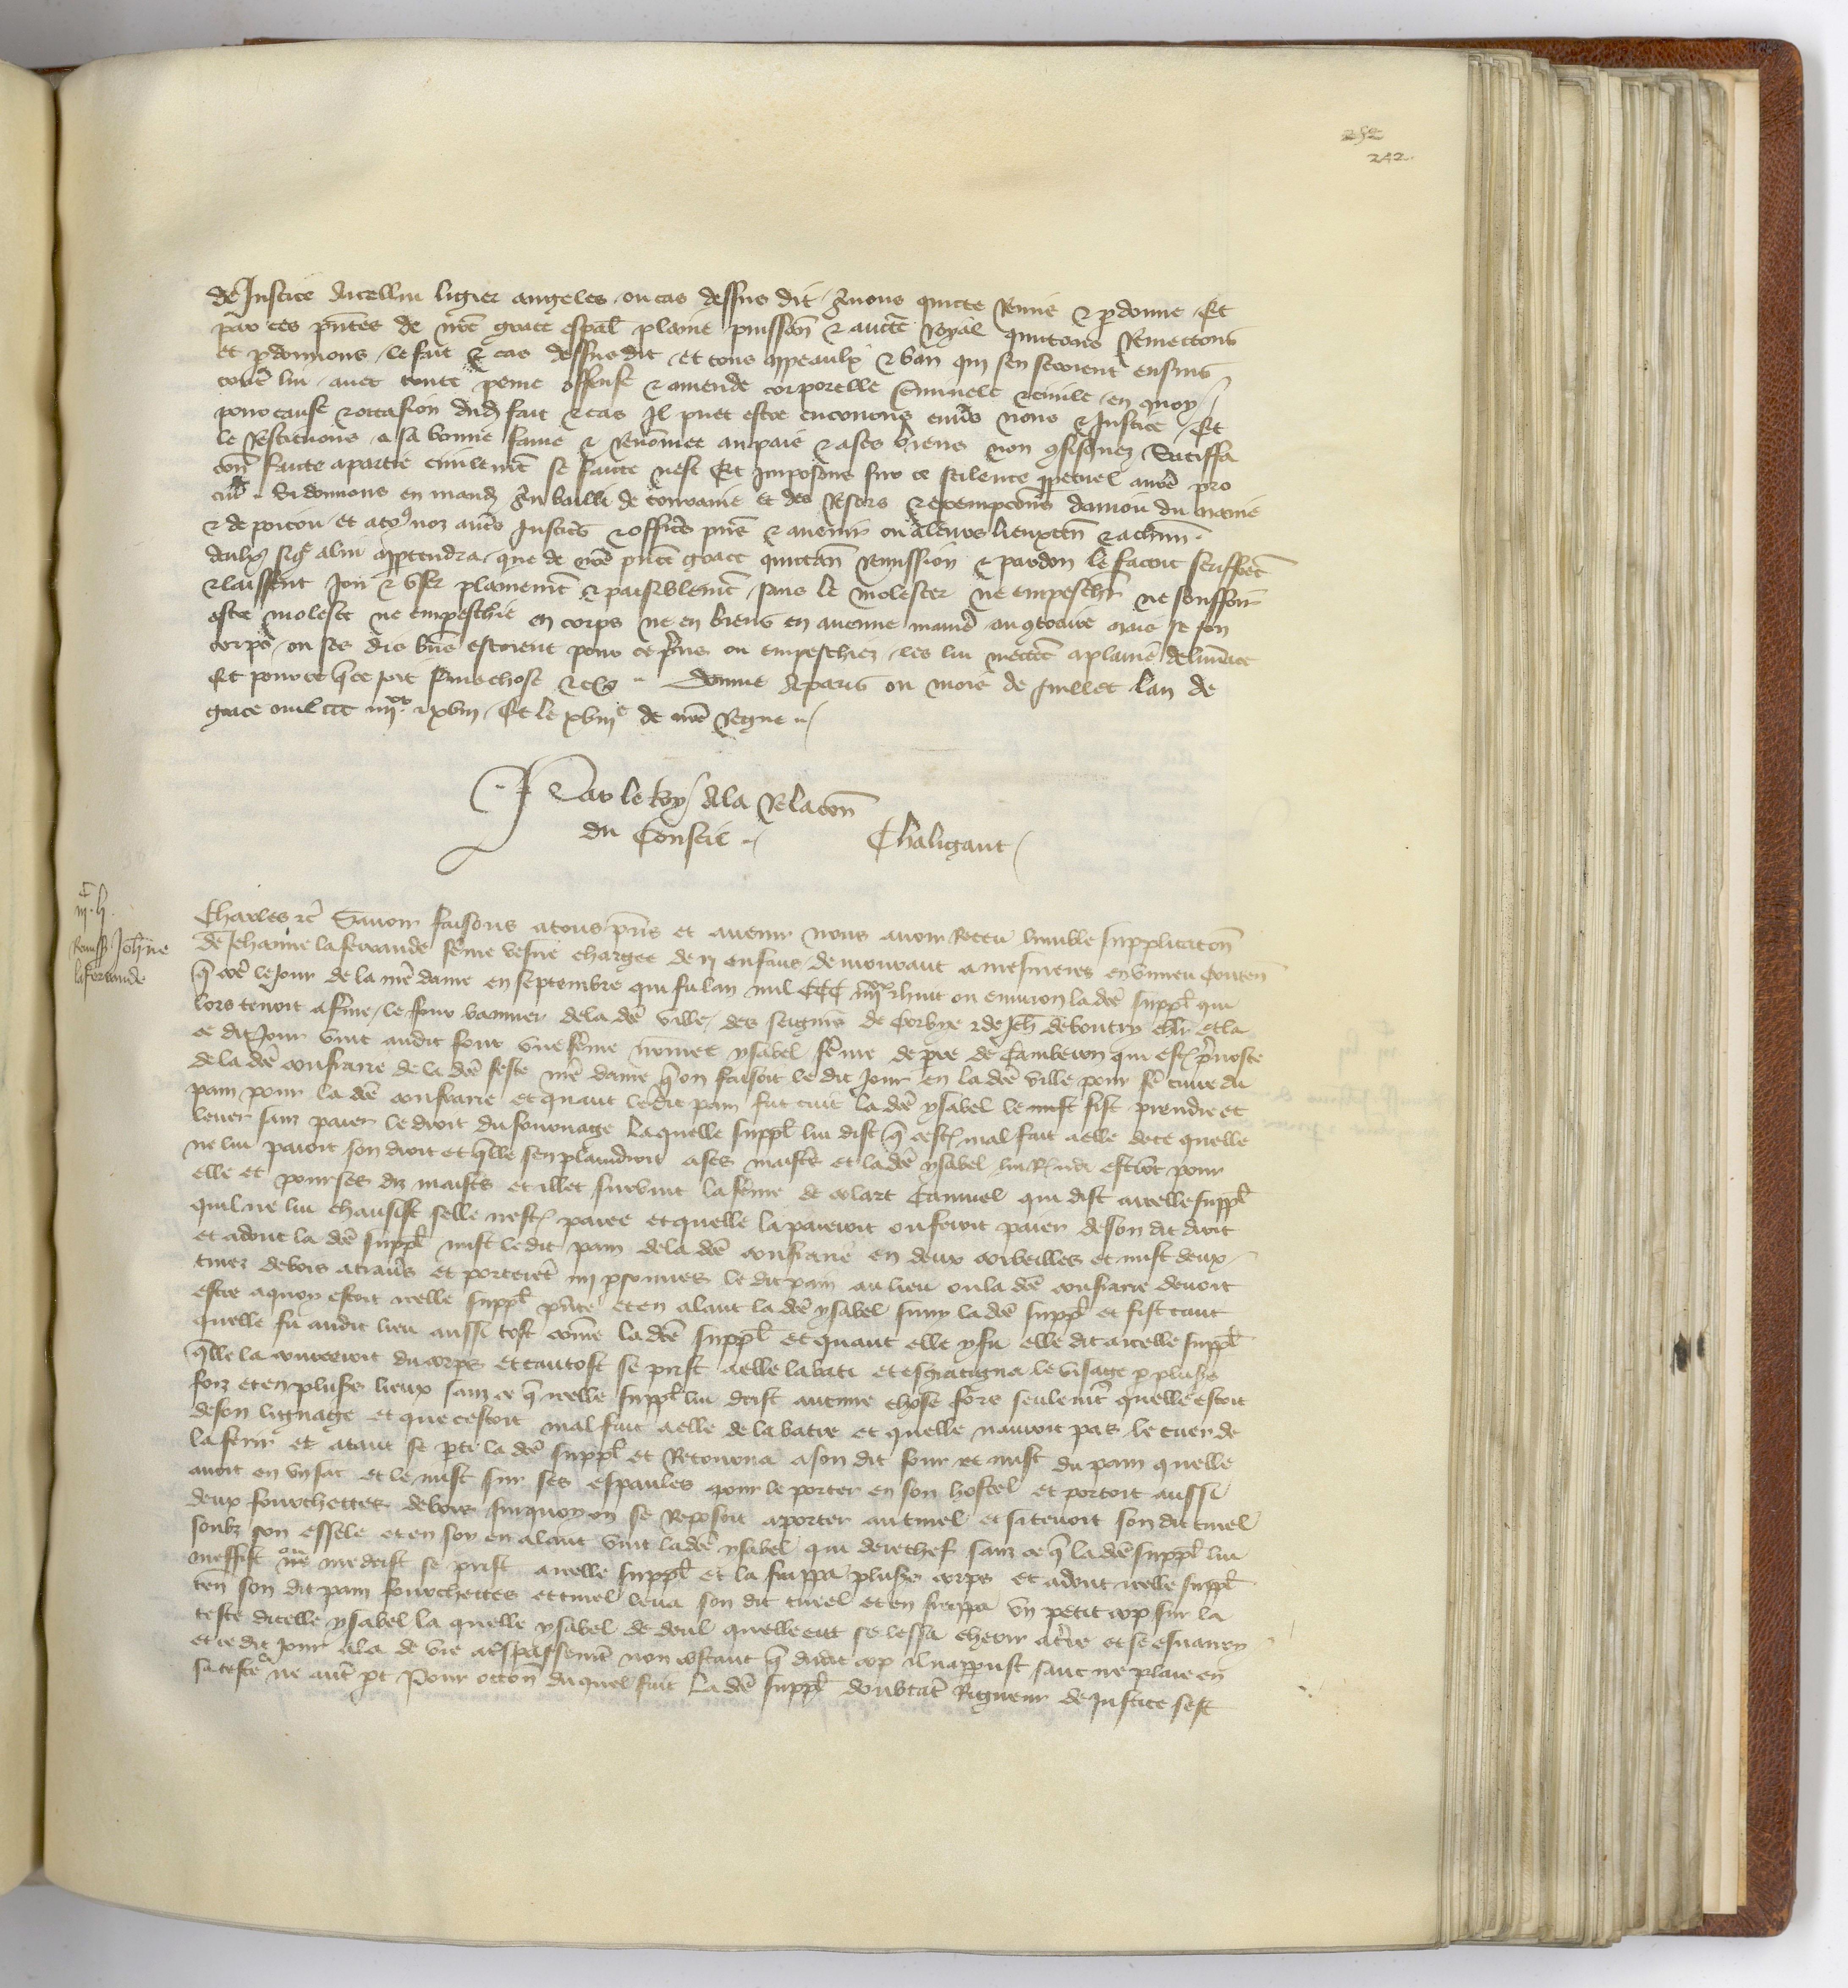 252
242.
de Justice dicellui ligier angeles ou cas dessus dit / avons quicte Remis & pdonne Et
par ces pntes de nre grace espal plaine puissan & aucte Royal quittons Remectons
et pdonnons le fait & cas dessus dit et tous appeaulx & ban qui sen seroient ensuis
contre lui / avec toute peine offense & amende corporelle criminele & civile en quoy /
pour cause & occasion dud fait & cas Il puet estre encouru envs nous & Justice Et
le Restituons a sa bonne fame & Renommee au pais & a ses biens non cfisquez Satiffa
con faicte a partie civilemt se faicte nest Et Imposons sur ce scilence ppetuel a nre pro
cur Si donnons en mand au bailli de touraine et des Ressors & exempcions danjou du maine
& de poitou / et a to9 noz aues Justiciers & officiers pns & avenir ou a leurs lieuxten & a chun
deulx si come a lui apptendra / que de nre pnte grace quittan Remission & pardon le facent seuffrent
& laissent Joir & user plainemt & paisiblemt sans le molester ne empeschr ne souffrir
estre moleste ne empeschie en corps ne en biens en aucune maniere au cotraire mais se son
corps / ou ses dis biens estoient pour ce pris ou empeschiez les lui mectent a plaine delivrance
Et pour ce que ce soit ferme chose &c Donne A paris ou mois de Juillet Lan de
grace mil ccc iiijxx & xviij / Et le xviije de nre Regne /
Par le Roy / A la Relacon
du Conseil / Chaligaut /
Remiss Jehne
la ferrande
Charles &c Savoir faisons a tous pns et avenir nous avoir Receu lumble supplicacon
de Jehanne la ferrande feme vesve chargee de ij enfans demourant a mesnieres en vimeu Conten
q come le jour de la nre dame en septembre qui fu lan mil CCC iiijxx & huit ou environ la dce suppl qui
lors tenoit a ferme le four bannier de la dce ville / des seigneurs de Corbye & de Jeh de boutry chlr et la
ce dit Jour vint au dit four une feme nomee ysabel feme de pre de Camberon qui est prevoste
de la dce confrarie de la dce feste nre dame q on faisoit le dit Jour en la dce ville pour fe cuire du
pain pour la dce confrarie et quant le dit pain fut cuit la dce ysabel le mist fist prendre et
lever sanz paier le droit du fournage Laquelle suppl lui dist q cest mal fait a elle de ce quelle
ne lui paioit son droit et qlle sen plaindroit a ses maistres et la dce ysabel lui Rndi estront pour
elle et pour ses diz maistres et illec survint la feme de colart Canivel qui dist a icelle suppl
quil ne lui chausist selle nest paiee et quelle la paieroit ou feroit paier de son dit droit
et adonc la dce suppl mist le dit pain de la dce confrarie en deux corbeilles et mist deux
tinez de bois a travers et porterent iiij psonnes le dit pain au lieu ou la dce confrarie devoit
estre a quoy estoit icelle suppl pnte et en alant la dce ysabel suivy la dce suppl et fist tant
quelle fu au dit lieu aussi tost come la dce suppl et quant elle y fu elle dit a icelle suppl
qlle la courceroit du corps et tantost se prist a elle la bati et esgratigna le visage p pluss
foiz et en pluss lieux sanz ce q icelle suppl lui deist autre chose fors seulemt quelle estoit
de son lignage et que cestoit mal fait a elle de la batre et quelle navoit pas le cuer de
la ferir et atant se pti la dce suppl et Retourna a son dit four et mist du pain quelle
avoit en un sac et le mist sur ses espaules pour le porter en son hostel et portoit aussi
deux fourchettes de bois sur quoy on se Reposoit a porter au tinel et si tenoit son dit tinel
soubz son essele et en soy en alant vint la dce ysabel qui derechef sanz ce q la dce suppl lui
meffist ou ne mesdeist se prist a icelle suppl et la frappa pluss cops et adonc icelle suppl
ten son dit pain fourchettes et tinel leva son dit tinel et en frappa un petit cop sur la
teste dicelle ysabel la quelle ysabel de deul quelle eut se lessa cheoir a terre et se esvanuy
et ce dit jour ala de vie a trespassemt non obstant q du dit cop il naparust sanc ne plaie en
sa teste ne autre pt Pour occon du quel fait la dce suppl doubtat Rigueur de Justice sest